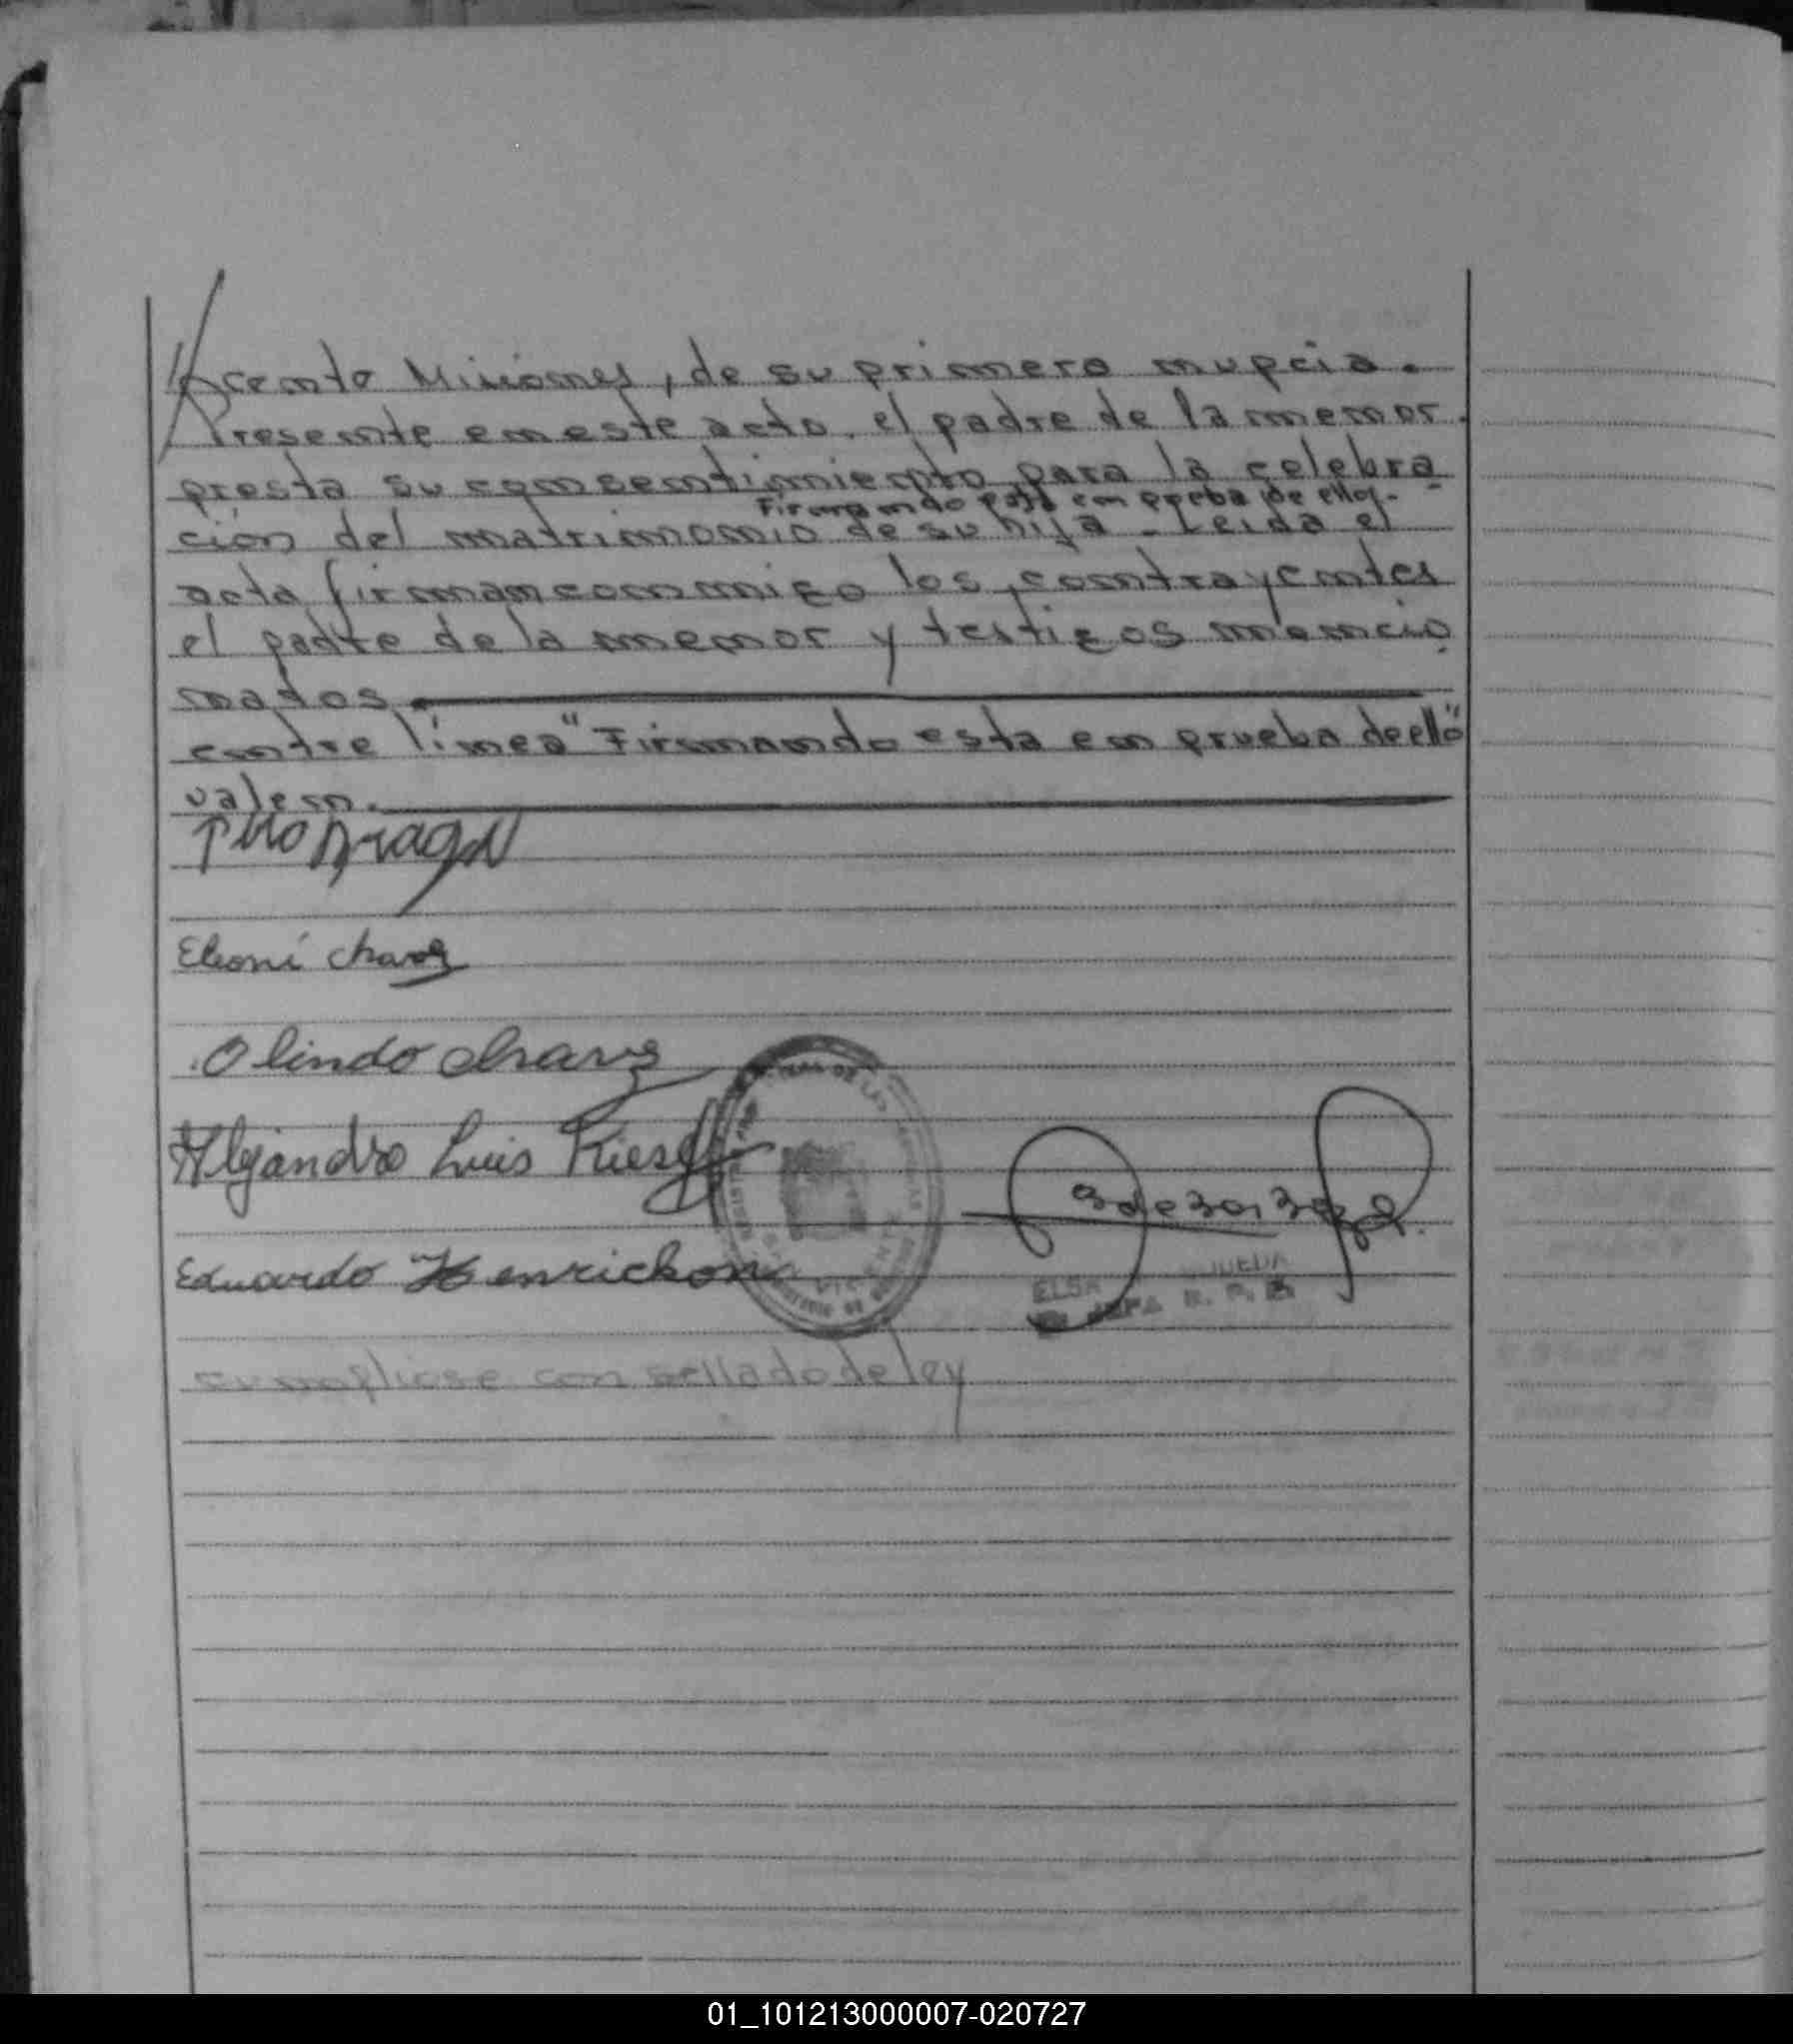 Vicente Misiones, de su primera nupcia.
Presente en este acto, el padre de la menor.
presta su consentimiento para la celebra
Firmando esta en prueba de ello.-
ción del matrimonio de su hija - Leida el
acta firman conmigo los contrayentes
el padre de la menor y testigos mencio
nados.
entre linea "Firmando esta en prueba de ello"
valen.
Braga
Eleoni Chavez
Olindo Chavez
Alejandro Luis
Eduardo Henrickson
ELSA
JEFA R. P.
cumpliose con sellado de ley
01_101213000007-020727